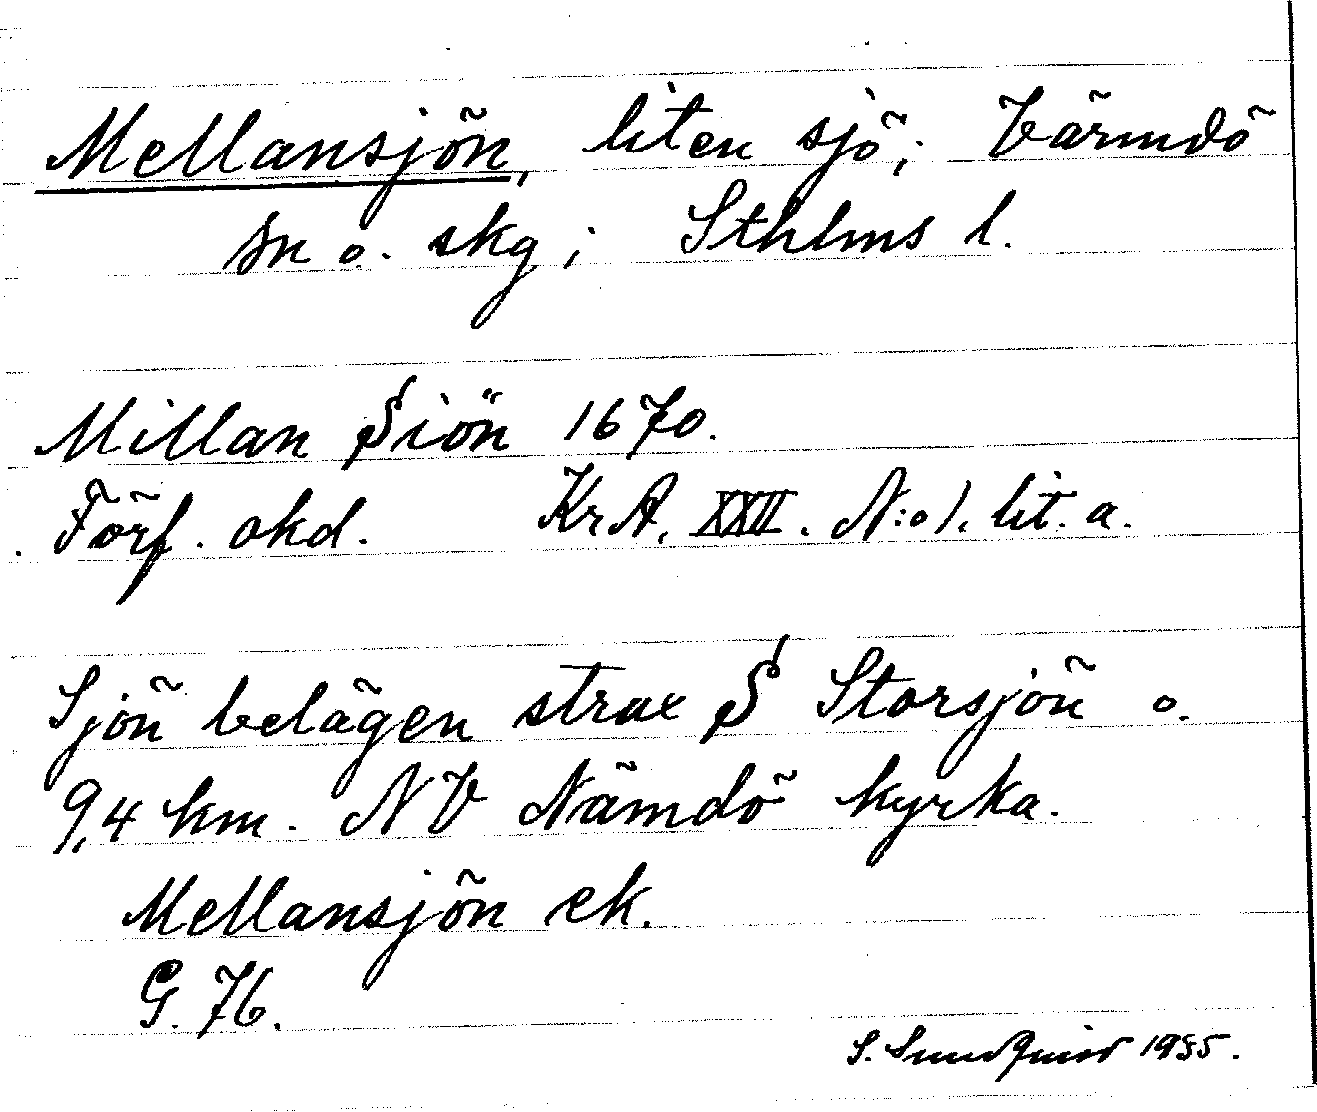 Mellansjön, liten sjö; Värmdö
sn o. skg; Sthlms l.
Millan Siön 1670.
Förf. okd. KrA. XXII. N:o 1. lit. a.
Sjön belägen strax S Storsjön o.
9,4 km. NV Nämdö kyrka.
Mellansjön ek.
G. 76.
S. Sundquist 1935.